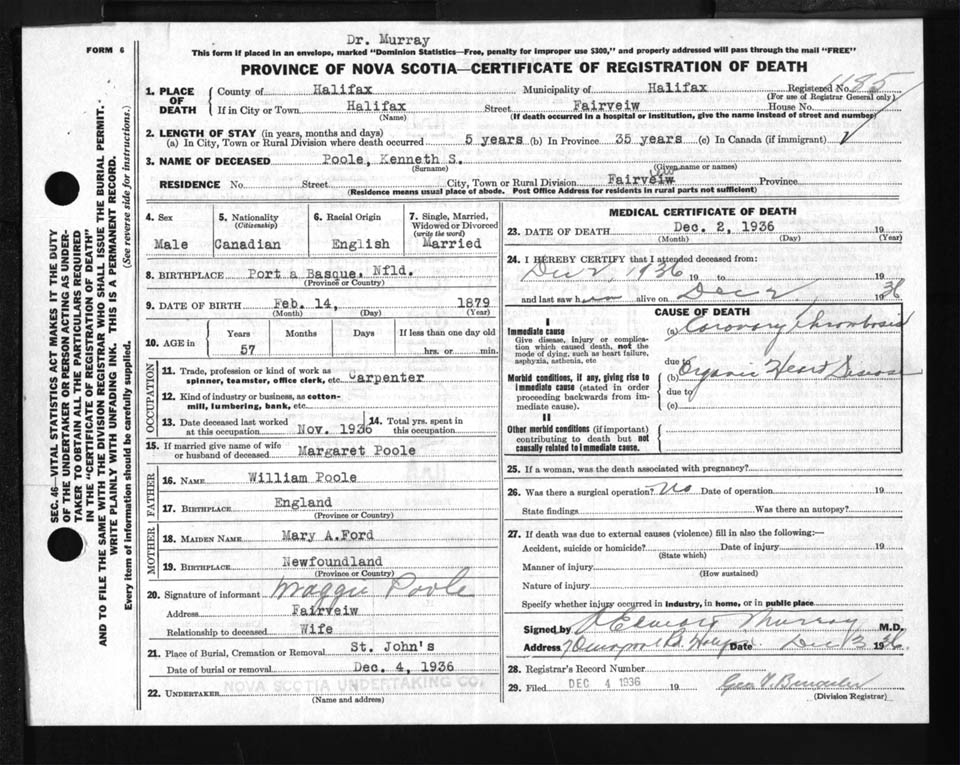 Dr. Murray
FORM 6
This form if placed in an envelope, marked "Dominion Statistics—Free, penalty for improper use $300," and properly addressed will pass through the mail "FREE"
PROVINCE OF NOVA SCOTIA—CERTIFICATE OF REGISTRATION OF DEATH
SEC. 46—VITAL STATISTICS ACT MAKES IT THE DUTY
OF THE UNDERTAKER OR PERSON ACTING AS UNDER-
TAKER TO OBTAIN ALL THE PARTICULARS REQUIRED
IN THE "CERTIFICATE OF REGISTRATION OF DEATH"
AND TO FILE THE SAME WITH THE DIVISION REGISTRAR WHO SHALL ISSUE THE BURIAL PERMIT.
WRITE PLAINLY WITH UNFADING INK. THIS IS A PERMANENT RECORD.
Every item of information should be carefully supplied. (See reverse side for instructions.)
1. PLACE OF DEATH
County of Halifax Municipality of Halifax Registered No. 1185
(For use of Registrar General only)
If in City or Town Halifax Street Fairveiw House No.
(Name) (If death occurred in a hospital or institution, give the name instead of street and number)
2. LENGTH OF STAY (in years, months and days)
(a) In City, Town or Rural Division where death occurred 5 years (b) In Province 35 years (c) In Canada (if immigrant)
3. NAME OF DECEASED Poole, Kenneth S.
(Surname) (Given name or names)
RESIDENCE No. Street City, Town or Rural Division Fairveiw Province
(Residence means usual place of abode. Post Office Address for residents in rural parts not sufficient)
4. Sex
Male
5. Nationality
(Citizenship)
Canadian
6. Racial Origin
English
7. Single, Married,
Widowed or Divorced
(write the word)
Married
8. BIRTHPLACE Port a Basque, Nfld.
(Province or Country)
9. DATE OF BIRTH Feb. 14, 1879
(Month) (Day) (Year)
10. AGE in
Years Months Days If less than one day old
57 hrs. or min.
OCCUPATION
11. Trade, profession or kind of work as
spinner, teamster, office clerk, etc. Carpenter
12. Kind of industry or business, as cotton-
mill, lumbering, bank, etc.
13. Date deceased last worked
at this occupation Nov. 1936
14. Total yrs. spent in
this occupation
15. If married give name of wife
or husband of deceased Margaret Poole
FATHER
16. NAME William Poole
17. BIRTHPLACE England
(Province or Country)
MOTHER
18. MAIDEN NAME Mary A.Ford
19. BIRTHPLACE Newfoundland
(Province or Country)
20. Signature of informant Maggie Poole
Address Fairveiw
Relationship to deceased Wife
21. Place of Burial, Cremation or Removal St. John's
Date of burial or removal Dec. 4, 1936
22. UNDERTAKER NOVA SCOTIA UNDERTAKING CO.
(Name and address)
MEDICAL CERTIFICATE OF DEATH
23. DATE OF DEATH Dec. 2, 1936 19
(Month) (Day) (Year)
24. I HEREBY CERTIFY that I attended deceased from:
Dec 2 1936 19 to 19
and last saw h alive on Dec 2 1936
CAUSE OF DEATH
I
Immediate cause
Give disease, injury or complica-
tion which caused death, not the
mode of dying, such as heart failure,
asphyxia, asthenia, etc
(a) Coronary Thrombosis
due to
Morbid conditions, if any, giving rise to
immediate cause (stated in order
proceeding backwards from im-
mediate cause).
(b) Organic Heart Disease
due to
(c)
II
Other morbid conditions (if important)
contributing to death but not
causally related to immediate cause.
25. If a woman, was the death associated with pregnancy?
26. Was there a surgical operation? No Date of operation 19
State findings Was there an autopsy?
27. If death was due to external causes (violence) fill in also the following:—
Accident, suicide or homicide? Date of injury 19
(State which)
Manner of injury
(How sustained)
Nature of injury
Specify whether injury occurred in industry, in home, or in public place
Signed by Murray M.D.
Address Halifax Date Dec 3 1936.
28. Registrar's Record Number
29. Filed DEC 4 1936 19
(Division Registrar)